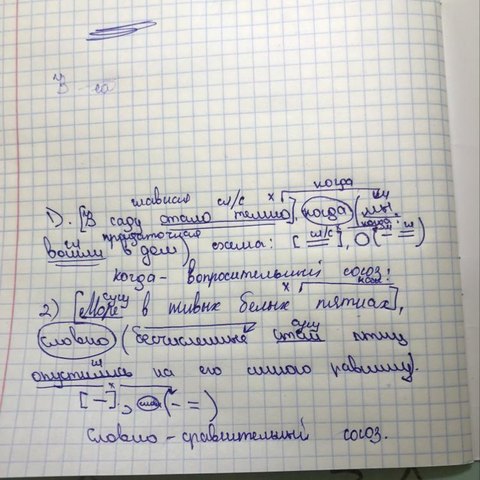 когда
главная гл/с х
1). [В саду стало темно], когда (мы
придаточная
вошли в дом) схема: [ гл/с ], О (- =)
когда - вопросительный союз!
сущ х
2) [Море в живых белых пятнах],
сущ
словно (бесчисленные стаи птиц
гл
опустились на его синюю равнину).
х
[ - ], (- =)
Словно - сравнительный союз.